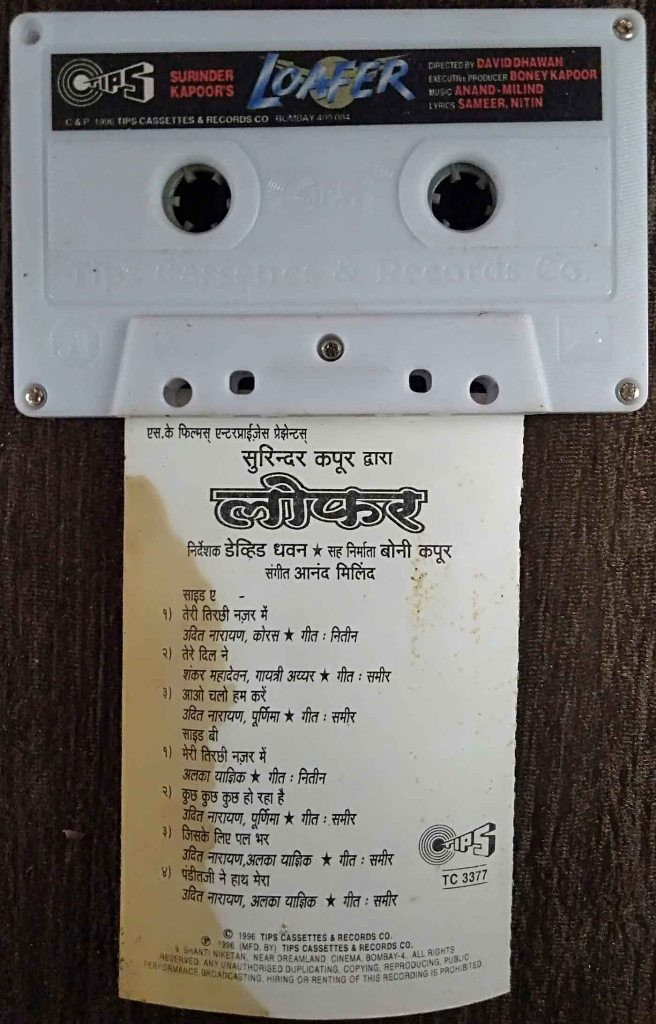 TIPS
SURINDER KAPOOR'S
LOAFER
DIRECTED BY DAVID DHAWAN
EXECUTIVE PRODUCER BONEY KAPOOR
MUSIC ANAND-MILIND
LYRICS SAMEER, NITIN
C & P 1996 TIPS CASSETTES & RECORDS CO BOMBAY 400 004
Tips Cassettes & Records Co.
एस.के फिल्मस् एन्टरप्राईज़ेस प्रेझेन्टस्
सुरिन्दर कपूर द्वारा
लोफर
निर्देशक डेव्हिड धवन ★ सह निर्माता बोनी कपूर
संगीत आनंद मिलिंद
साइड ए -
१) तेरी तिरछी नज़र में
उदित नारायण, कोरस ★ गीत : नितीन
२) तेरे दिल ने
शंकर महादेवन, गायत्री अय्यर ★ गीत : समीर
३) आओ चलो हम करें
उदित नारायण, पूर्णिमा ★ गीत : समीर
साइड बी
१) मेरी तिरछी नज़र में
अलका याज्ञिक ★ गीत : नितीन
२) कुछ कुछ कुछ हो रहा है
उदित नारायण, पूर्णिमा ★ गीत : समीर
३) जिसके लिए पल भर
उदित नारायण,अलका याज्ञिक ★ गीत : समीर
४) पंडीतजी ने हाथ मेरा
उदित नारायण, अलका याज्ञिक ★ गीत : समीर
TIPS
TC 3377
© 1996 TIPS CASSETTES & RECORDS CO.
℗ 1996 (MFD. BY) TIPS CASSETTES & RECORDS CO.
9, SHANTI NIKETAN, NEAR DREAMLAND CINEMA, BOMBAY-4. ALL RIGHTS
RESERVED. ANY UNAUTHORISED DUPLICATING, COPYING, REPRODUCING, PUBLIC
PERFORMANCE BROADCASTING, HIRING OR RENTING OF THIS RECORDING IS PROHIBITED